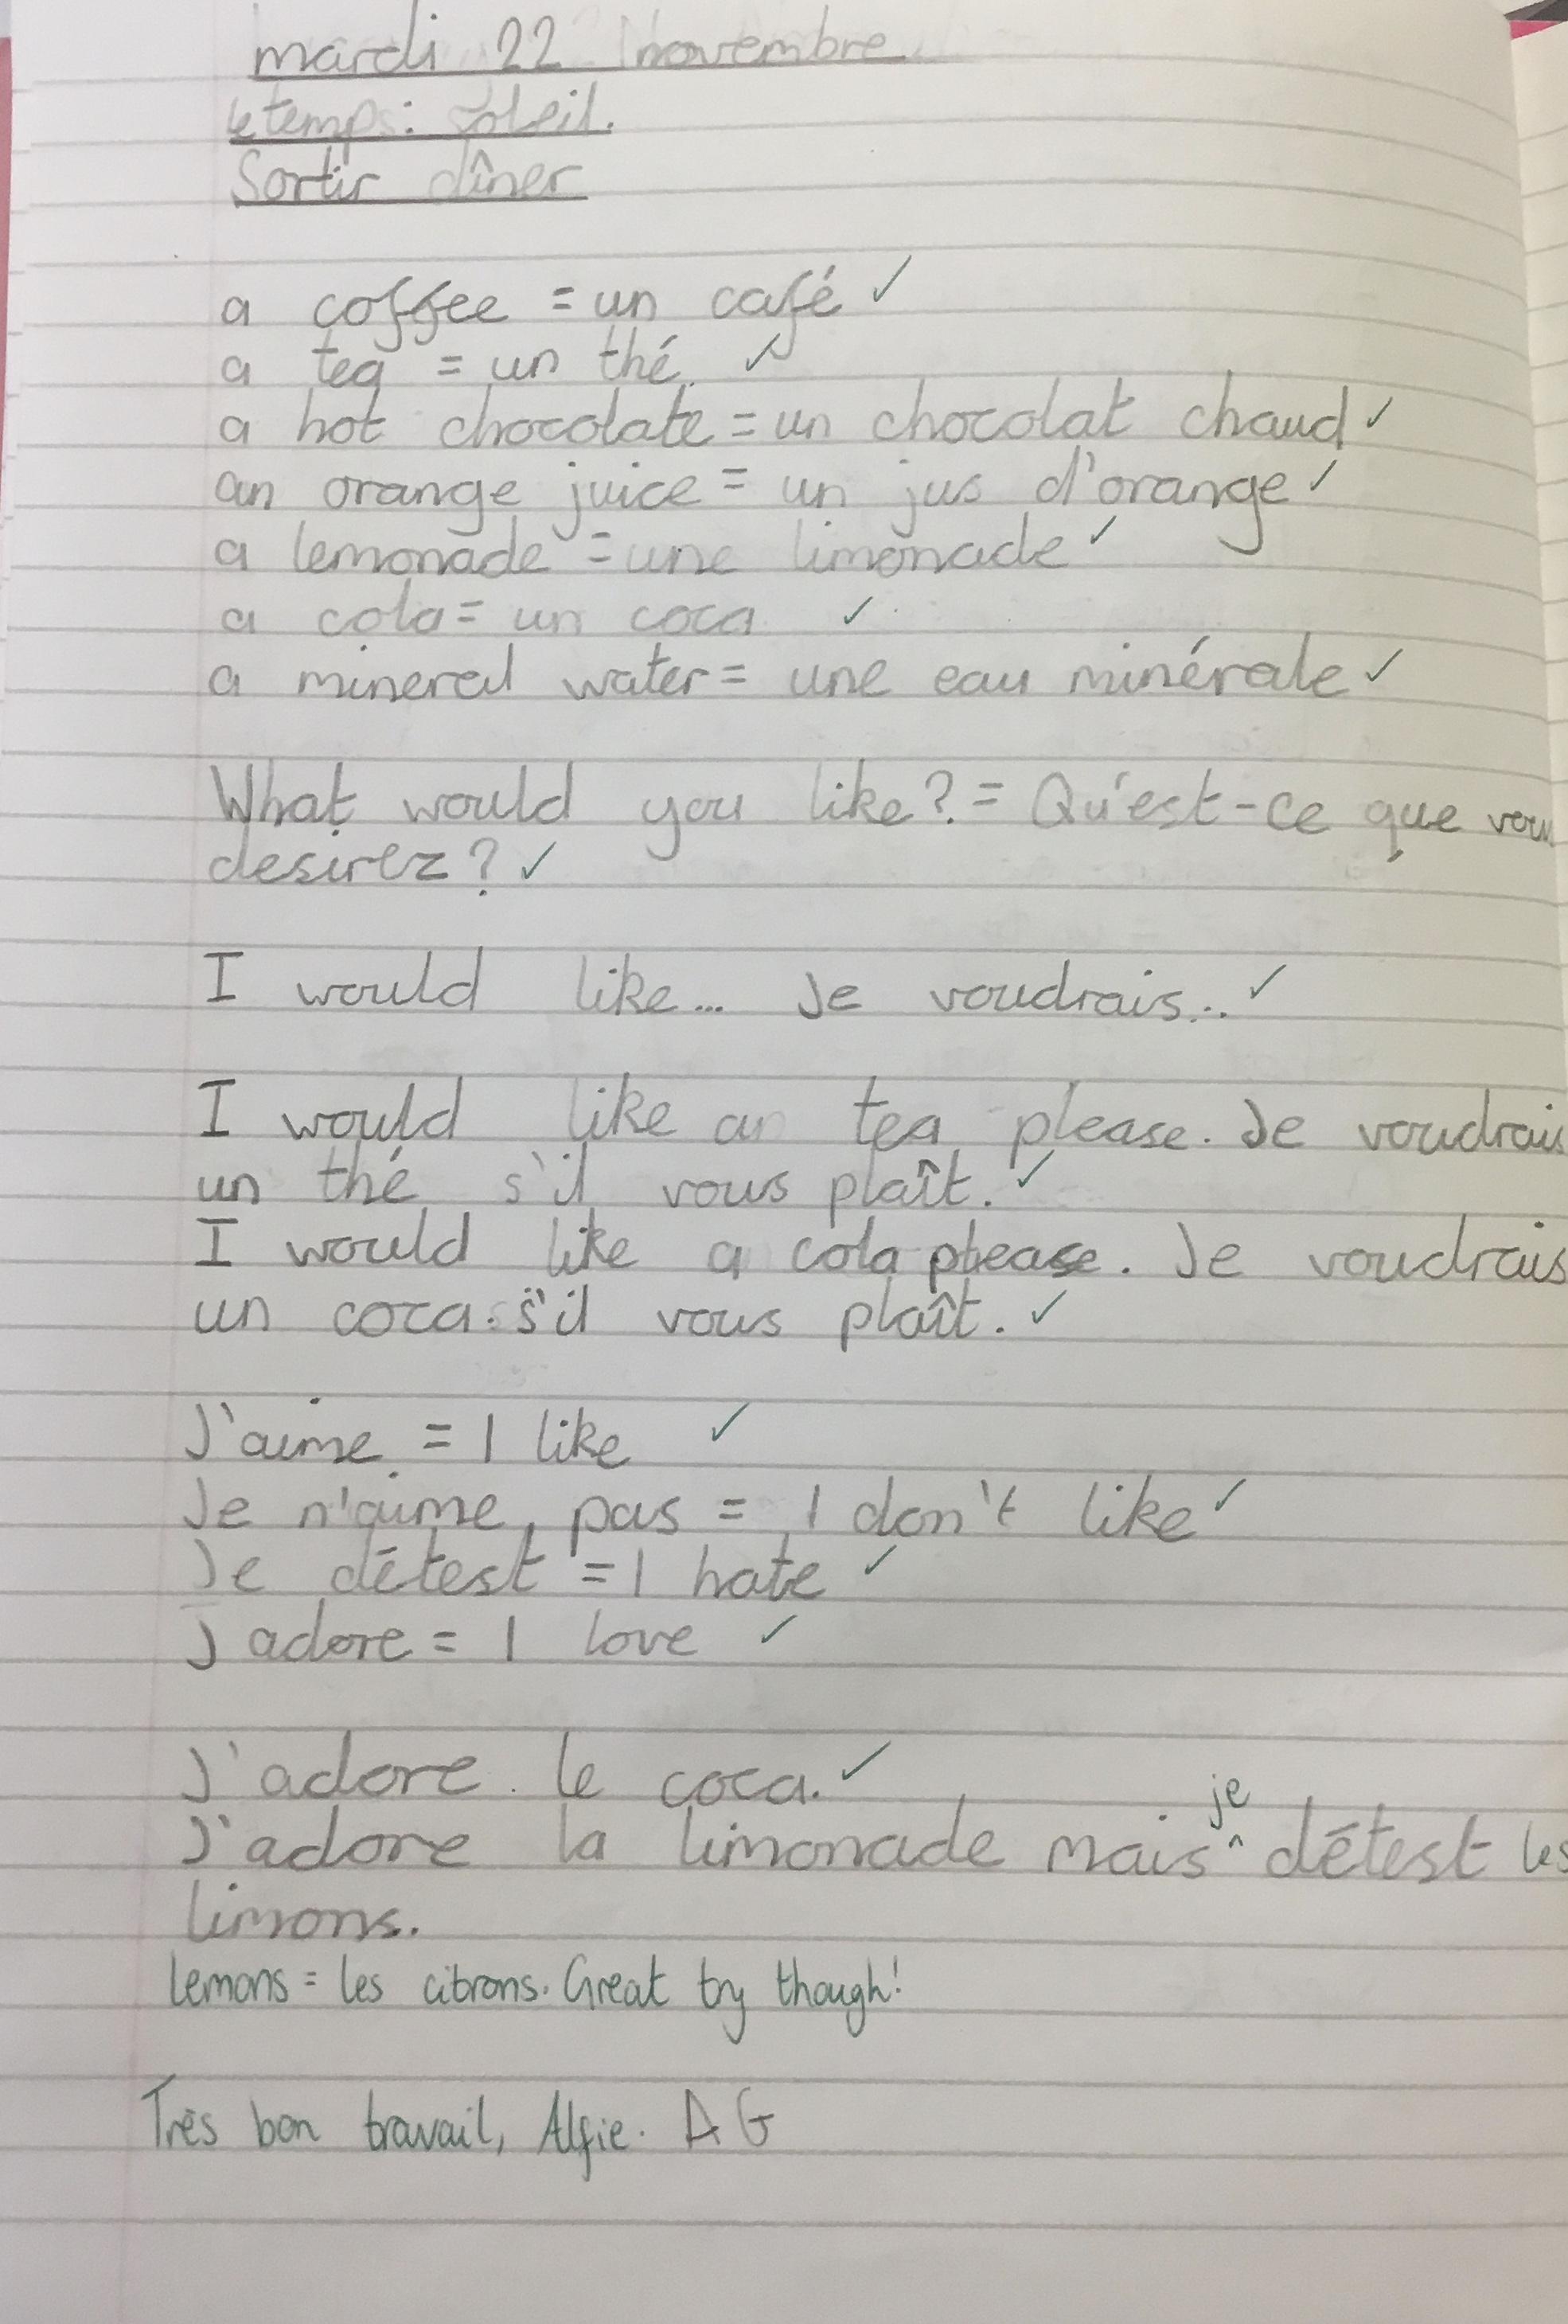 mardi 22 novembre
le temps: soleil.
Sortir dîner
a coffee = un café ✓
a tea = un thé. ✓
a hot chocolate = un chocolat chaud ✓
an orange juice = un jus d'orange ✓
a lemonade = une limonade ✓
a cola = un coca ✓
a mineral water = une eau minérale ✓
What would you like? = Qu'est-ce que vous
desirez? ✓
I would like... Je voudrais... ✓
I would like a tea please. Je voudrais
un thé s'il vous plaît. ✓
I would like a cola please. Je voudrais
un coca s'il vous plaît. ✓
J'aime = I like ✓
Je n'aime pas = I don't like ✓
Je détest = I hate ✓
J adore = I love ✓
J'adore le coca. ✓
J'adore la limonade mais je détest les
limons.
lemons = les citrons. Great try though!
Très bon travail, Alfie. AG